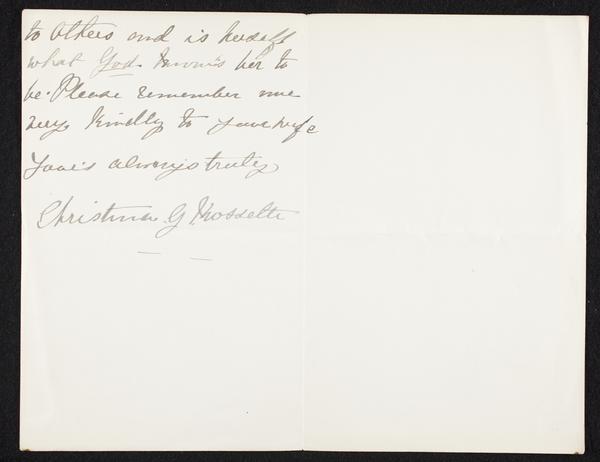 to others and is herself
what God knows her to
be. Please remember me
very kindly to your wife
Yours always truly
Christina G Rossetti